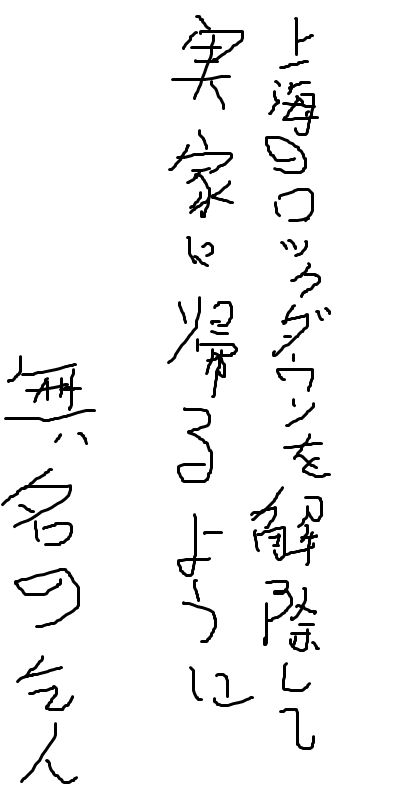 上海のロックダウンを解除して
実家に帰るように
無名の乞人